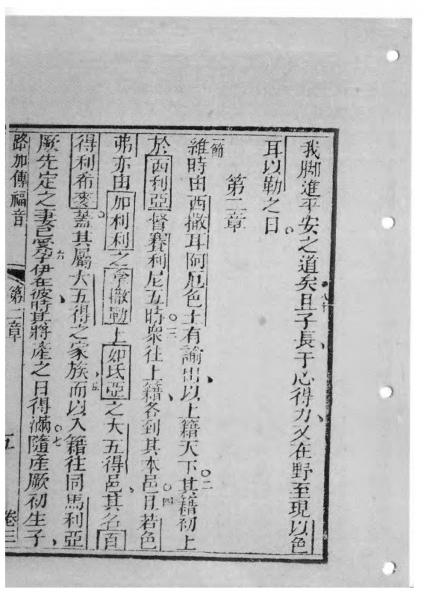 我脚進平安之道矣且子長于心得力又在野至現以色
耳以勒之日
第二章
一節
維時由西撒耳阿厄色土有諭出以上籍天下其籍初上
於西利亞督賽利尼五時衆往上籍各到其本邑且若色
弗亦由加利利之拿撒勒上如氏亞之大五得邑其名百
得利希蓋其屬大五得之家族而以入籍往同馬利亞
厥先定之妻已受孕伊在彼時其將產之日得滿隨產厥初生子
路加傳福音
第二章
五
卷三